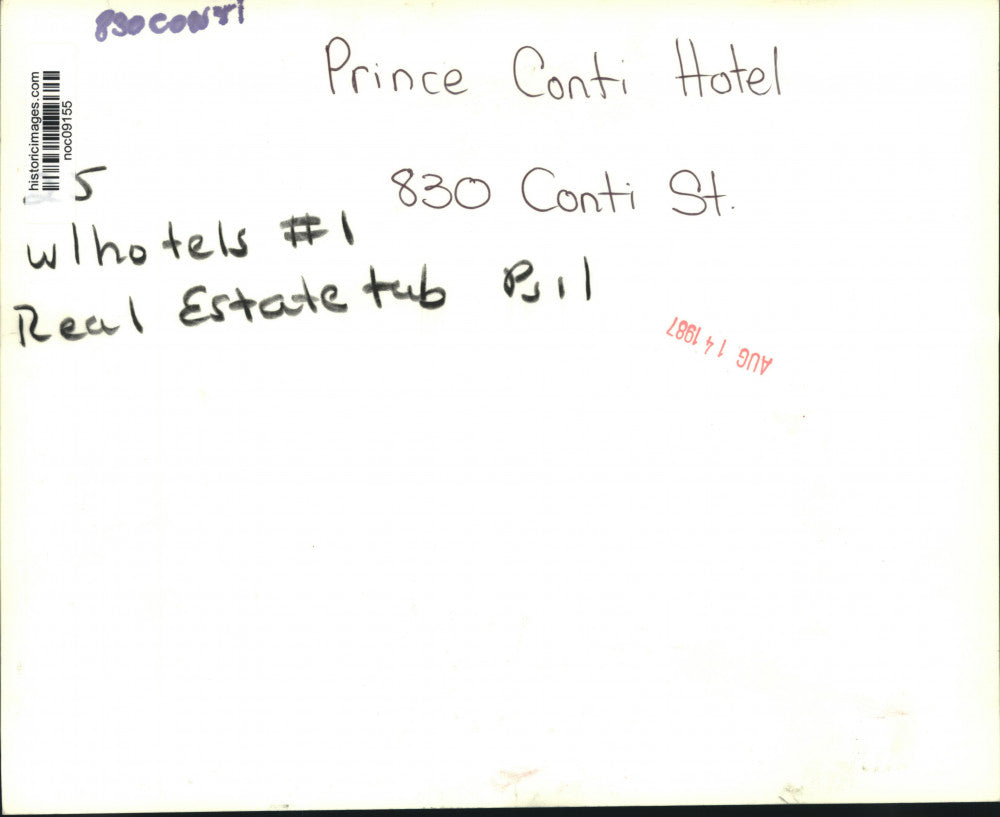 830 CONTI
Prince Conti Hotel
historicimages.com
noc09155
5
830 Conti St.
w/hotels #1
Real Estate tab
AUG 14 1987